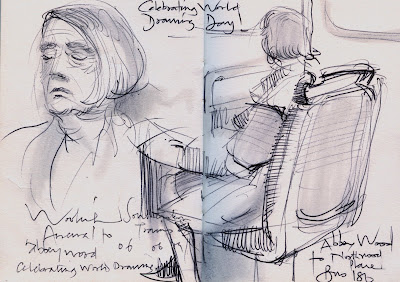 Celebrating World
Drawing Day!
Arsenal to
Abbey Wood 06 06
Celebrating World Drawing
Abbey Wood
to Northwood
Place
Bus 180